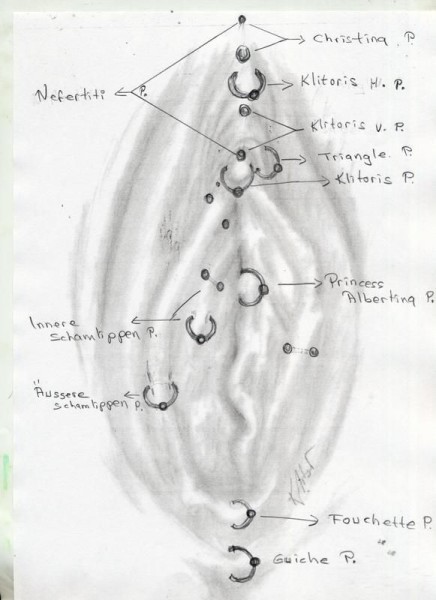 Christina P.
Klitoris H. P.
Nefertiti P.
Klitoris V. P.
Triangle P.
Klitoris P.
Princess
Albertina P.
Innere
Schamlippen P.
Äussere
Schamlippen P.
Fouchette P.
Guiche P.